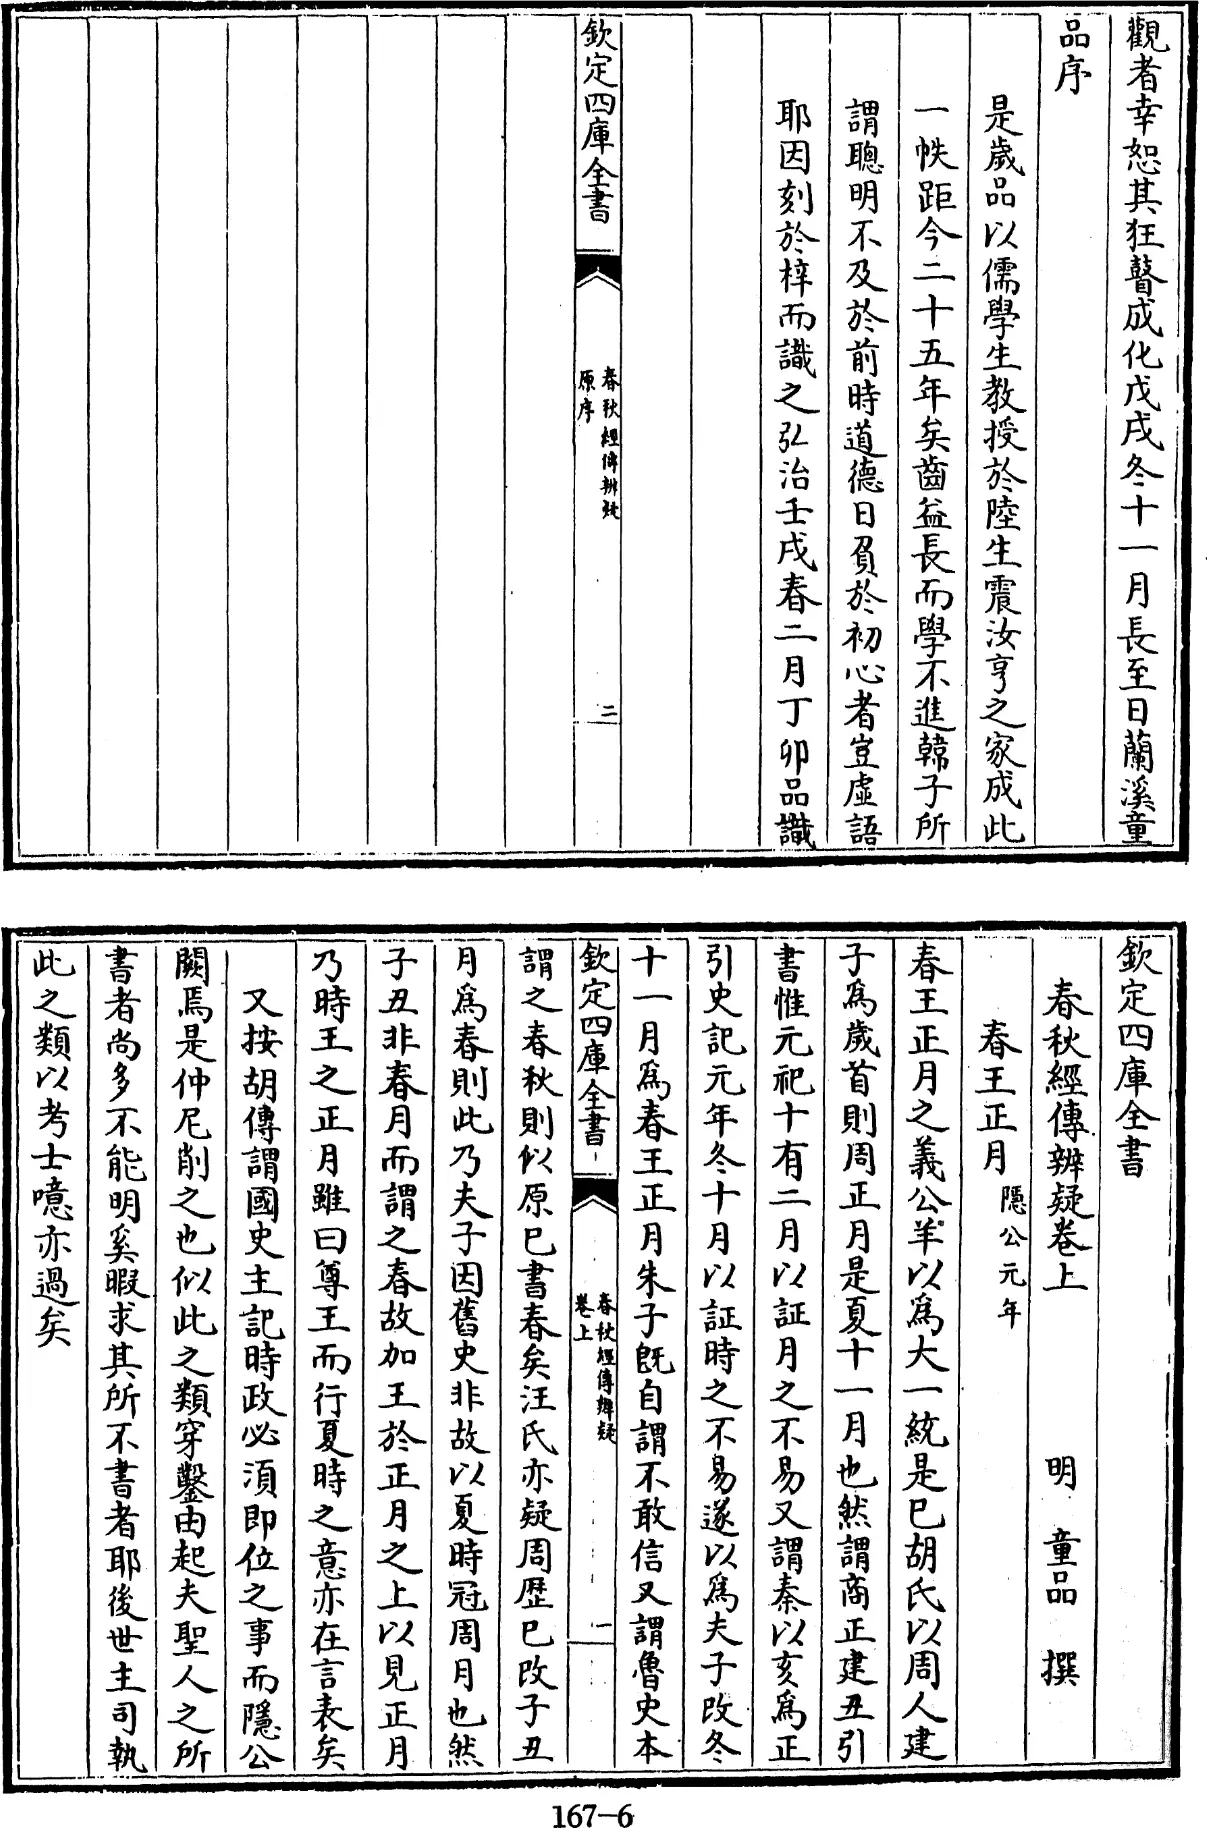 觀者幸恕其狂瞽成化戊戌冬十一月長至日蘭溪童
品序
是歲品以儒學生教授於陸生震汝亨之家成此
一帙距今二十五年矣齒益長而學不進韓子所
謂聰明不及於前時道德日負於初心者豈虛語
耶因刻於梓而識之弘治壬戌春二月丁卯品識
欽定四庫全書
春秋經傳辨疑
原序
二
欽定四庫全書
春秋經傳辨疑卷上
明 童品 撰
春王正月隱公元年
春王正月之義公羊以為大一統是巳胡氏以周人建
子為歲首則周正月是夏十一月也然謂商正建丑引
書惟元祀十有二月以証月之不易又謂秦以亥為正
引史記元年冬十月以証時之不易遂以為夫子改冬
十一月為春王正月朱子旣自謂不敢信又謂魯史本
欽定四庫全書
春秋經傳辨疑
卷上
一
謂之春秋則似原巳書春矣汪氏亦疑周歴巳改子丑
月為春則此乃夫子因舊史非故以夏時冠周月也然
子丑非春月而謂之春故加王於正月之上以見正月
乃時王之正月雖曰尊王而行夏時之意亦在言表矣
又按胡傳謂國史主記時政必須即位之事而隱公
闕焉是仲尼削之也似此之類穿鑿由起夫聖人之所
書者尚多不能明奚暇求其所不書者耶後世主司執
此之類以考士噫亦過矣
167-6